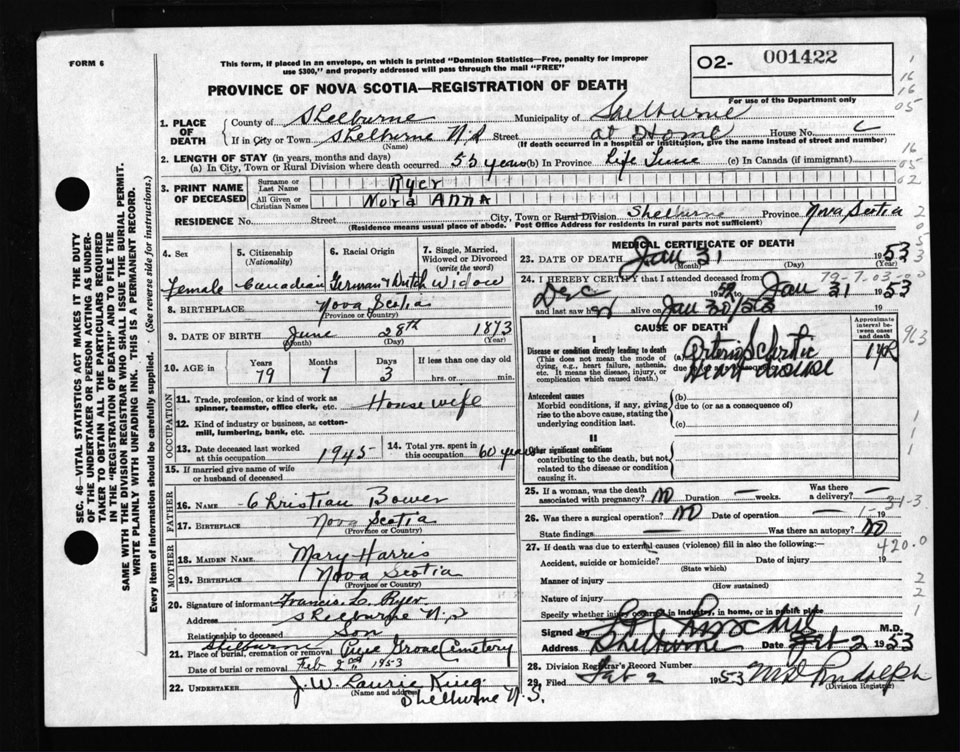 FORM 6
This form, if placed in an envelope, on which is printed "Dominion Statistics—Free, penalty for improper
use $300," and properly addressed will pass through the mail "FREE"
O2- 001422
For use of the Department only
PROVINCE OF NOVA SCOTIA—REGISTRATION OF DEATH
1. PLACE OF DEATH
County of Shelburne Municipality of Shelburne
If in City or Town Shelburne N.S Street at Home House No.
(Name) (If death occurred in a hospital or institution, give the name instead of street and number)
2. LENGTH OF STAY (in years, months and days)
(a) In City, Town or Rural Division where death occurred 53 years (b) In Province Life Time (c) In Canada (if immigrant)
3. PRINT NAME OF DECEASED
Surname or Last Name Ryer
All Given or Christian Names Nora Anna
RESIDENCE No. Street City, Town or Rural Division Shelburne Province Nova Scotia
(Residence means usual place of abode. Post Office Address for residents in rural parts not sufficient)
4. Sex Female
5. Citizenship (Nationality) Canadian
6. Racial Origin German & Dutch
7. Single, Married, Widowed or Divorced (write the word) Widow
8. BIRTHPLACE Nova Scotia
(Province or Country)
9. DATE OF BIRTH June 28th 1873
(Month) (Day) (Year)
10. AGE in Years 79 Months 7 Days 3 If less than one day old hrs. or min.
OCCUPATION
11. Trade, profession, or kind of work as spinner, teamster, office clerk, etc. House wife
12. Kind of industry or business, as cotton-mill, lumbering, bank, etc.
13. Date deceased last worked at this occupation 1945
14. Total yrs. spent in this occupation 60 years
15. If married give name of wife or husband of deceased
FATHER
16. NAME Christian Bower
17. BIRTHPLACE Nova Scotia
(Province or Country)
MOTHER
18. MAIDEN NAME Mary Harris
19. BIRTHPLACE Nova Scotia
(Province or Country)
20. Signature of informant Francis L. Ryer
Address Shelburne N.S
Relationship to deceased Son
21. Place of burial, cremation or removal Shelburne Pine Grove Cemetery
Date of burial or removal Feb 2nd 1953
22. UNDERTAKER J. W. Laurie King
(Name and address) Shelburne N.S.
MEDICAL CERTIFICATE OF DEATH
23. DATE OF DEATH Jan 31 1953
(Month) (Day)
79-7-03-00
24. I HEREBY CERTIFY that I attended deceased from
Dec 1952 to Jan 31 1953
and last saw her alive on Jan 30/53 19
CAUSE OF DEATH
Approximate interval between onset and death
I
Disease or condition directly leading to death
(This does not mean the mode of dying, e.g., heart failure, asthenia, etc. It means the disease, injury, or complication which caused death.)
(a) Arterio Sclerotic 14R
due to (or as a consequence of)
Heart Disease
Antecedent causes
Morbid conditions, if any, giving rise to the above cause, stating the underlying condition last.
(b)
due to (or as a consequence of)
(c)
II
Other significant conditions
contributing to the death, but not related to the disease or condition causing it.
25. If a woman, was the death associated with pregnancy? NO Duration — weeks. Was there a delivery? —
26. Was there a surgical operation? NO Date of operation — 19
State findings Was there an autopsy? NO
27. If death was due to external causes (violence) fill in also the following:—
420.0
Accident, suicide or homicide? Date of injury 19
(State which)
Manner of injury
(How sustained)
Nature of injury
Specify whether injury occurred in industry, in home, or in public place
Signed by M.D.
Address Shelburne Feb 2 1953
28. Division Registrar's Record Number
29. Filed Feb 2 1953 Randolph
(Division Registrar)
SEC. 46—VITAL STATISTICS ACT MAKES IT THE DUTY
OF THE UNDERTAKER OR PERSON ACTING AS UNDER-
TAKER TO OBTAIN ALL THE PARTICULARS REQUIRED
IN THE "REGISTRATION OF DEATH" AND TO FILE THE
SAME WITH THE DIVISION REGISTRAR WHO SHALL ISSUE THE BURIAL PERMIT.
WRITE PLAINLY WITH UNFADING INK. THIS IS A PERMANENT RECORD.
Every item of information should be carefully supplied. (See reverse side for instructions.)
1
16
16
05
16
05
02
2
0
5
3
963
1
1
1
2
2
1